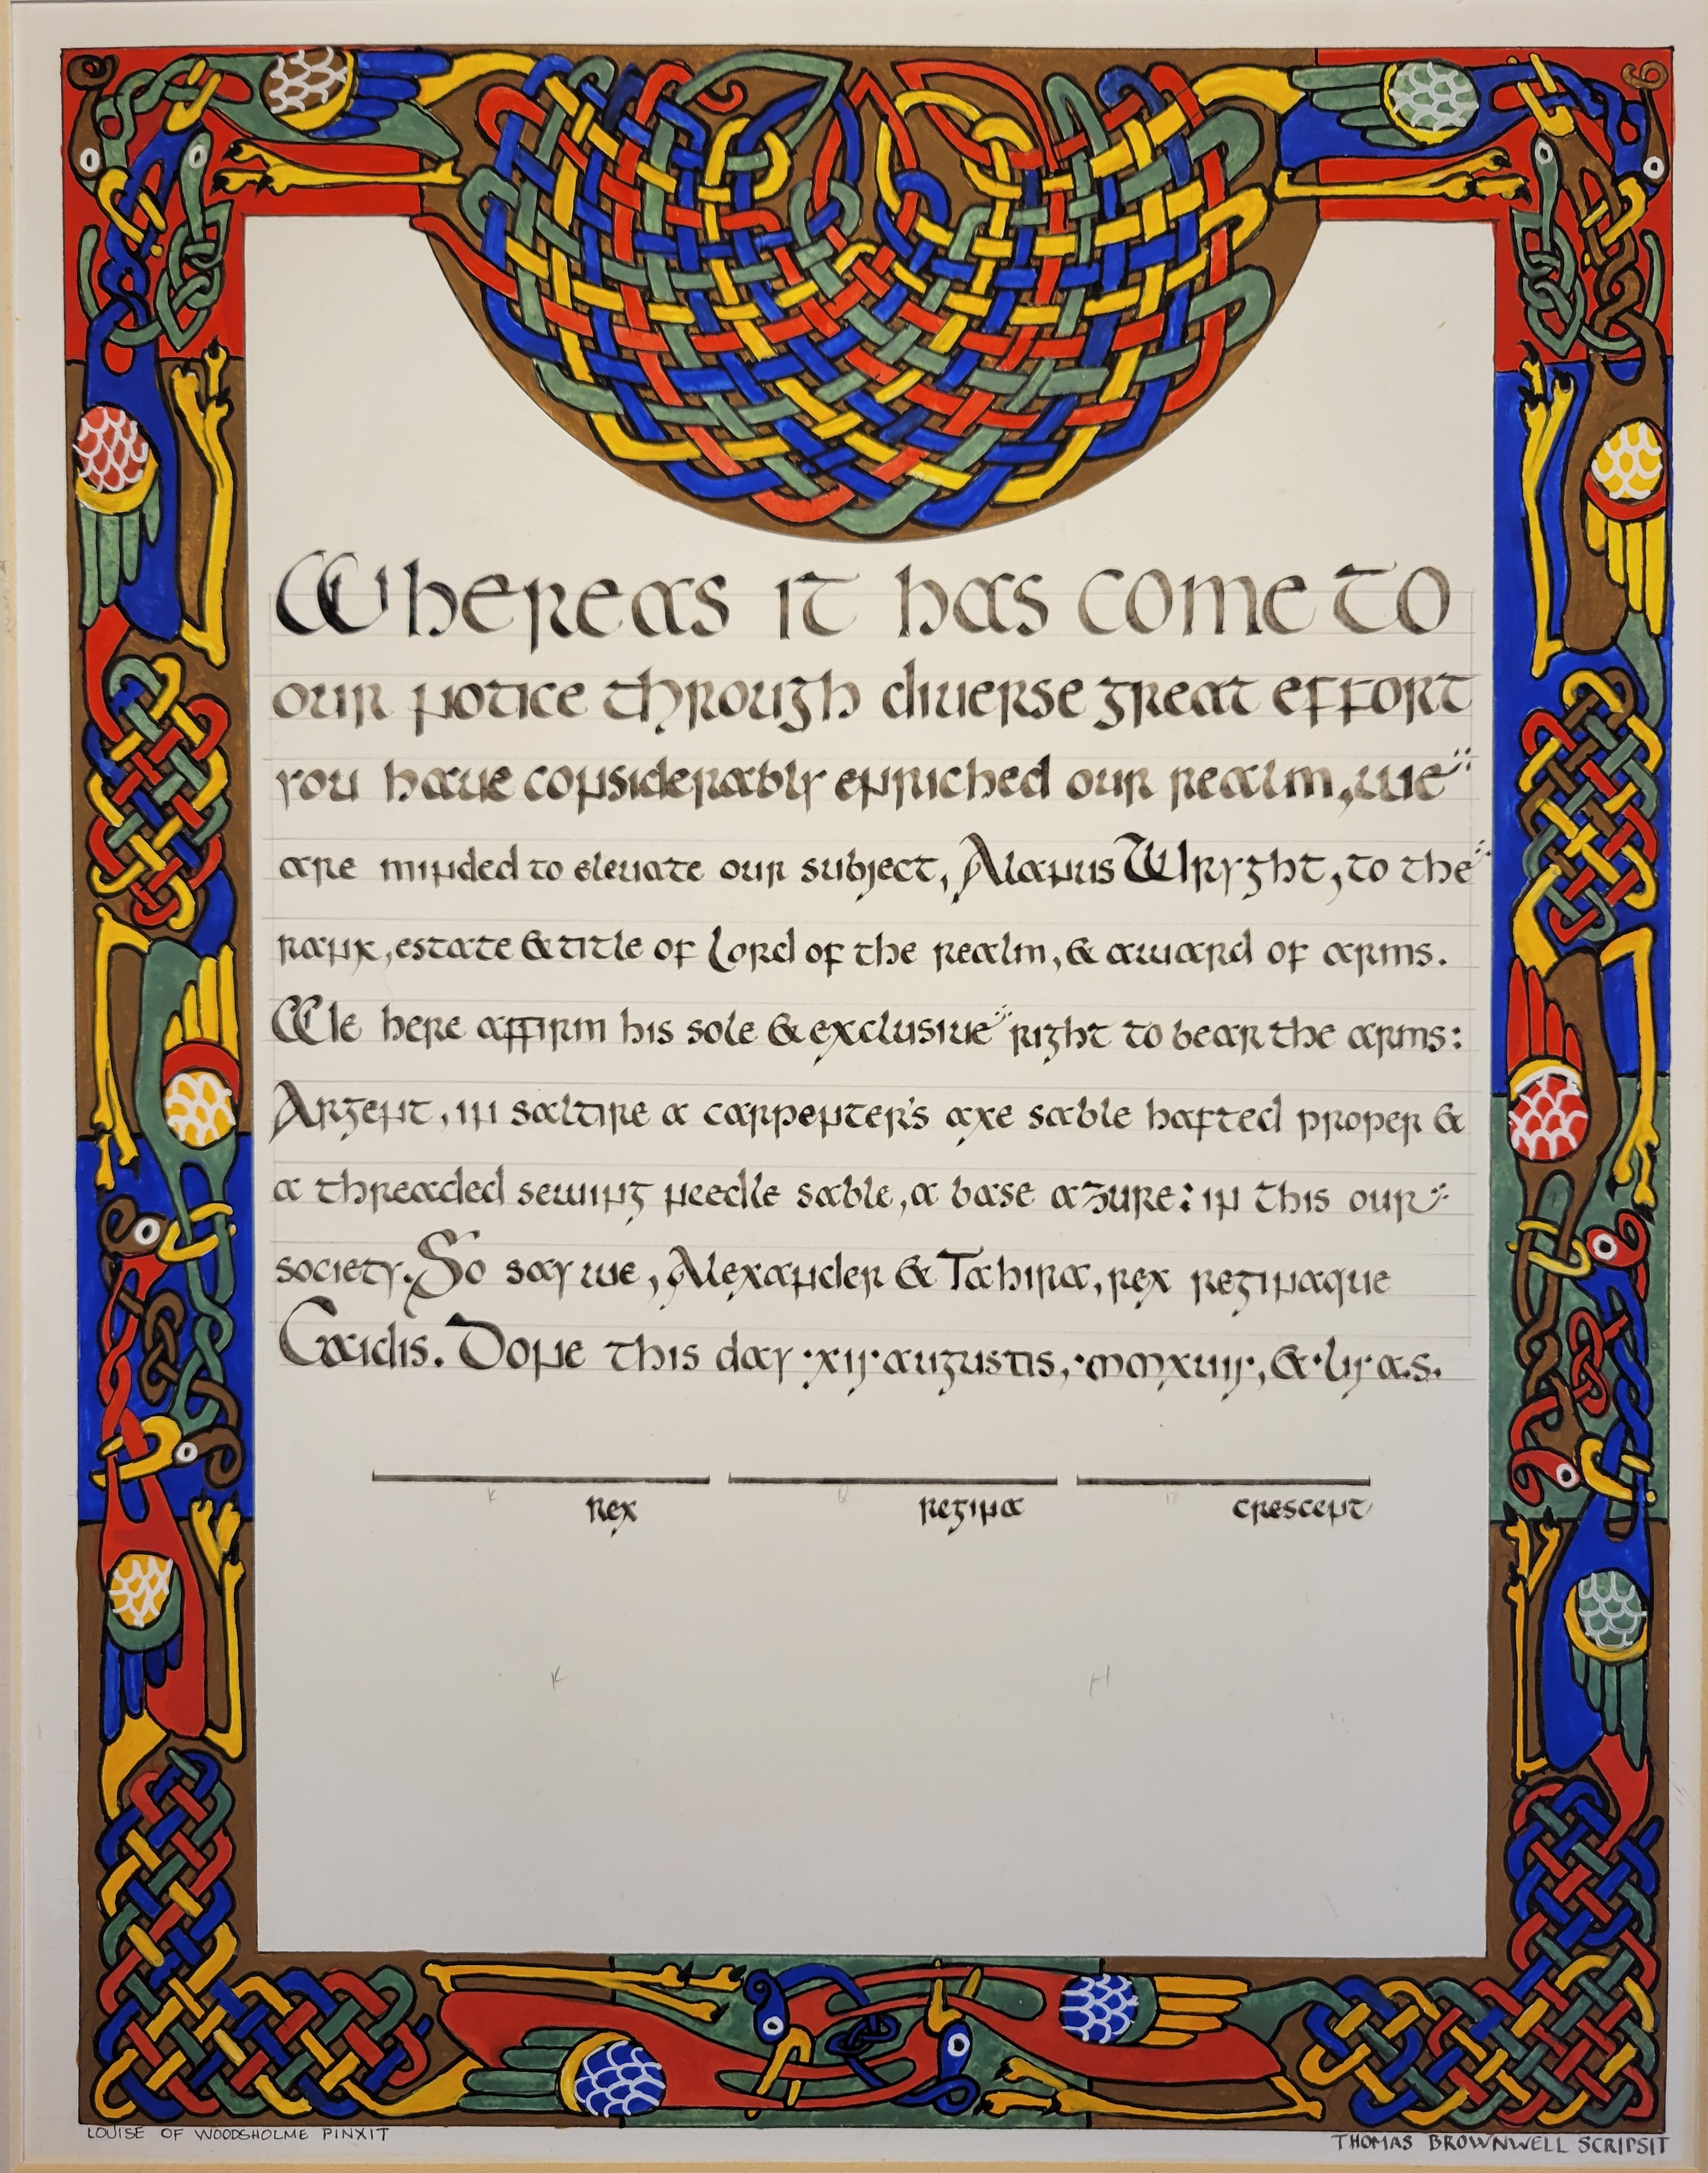 Whereas it has come to
our notice through diuerse great effort
you haue considerably enriched our realm, we
are minded to eleuate our subject, Alanus Wryght, to the
rank, estate & title of Lord of the realm, & award of arms.
We here affirm his sole & exclusiue right to bear the arms:
Argent, in saltire a carpenter's axe sable hafted proper &
a threaded sewing needle sable, a base azure: in this our
society. So say we, Alexander & Tahira, rex reginaque
Caidis. Done this day ·xij· augustis, ·mmxuij·, & ·lij· a.s.
rex regina crescent
K H
LOUISE OF WOODSHOLME PINXIT
THOMAS BROWNWELL SCRIPSIT